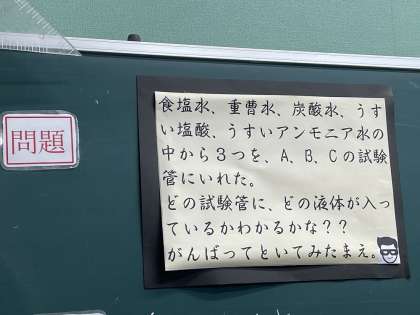 問題
食塩水、重曹水、炭酸水、うす
い塩酸、うすいアンモニア水の
中から３つを、A、B、Cの試験
管にいれた。
どの試験管に、どの液体が入っ
ているかわかるかな？？
がんばってといてみたまえ。